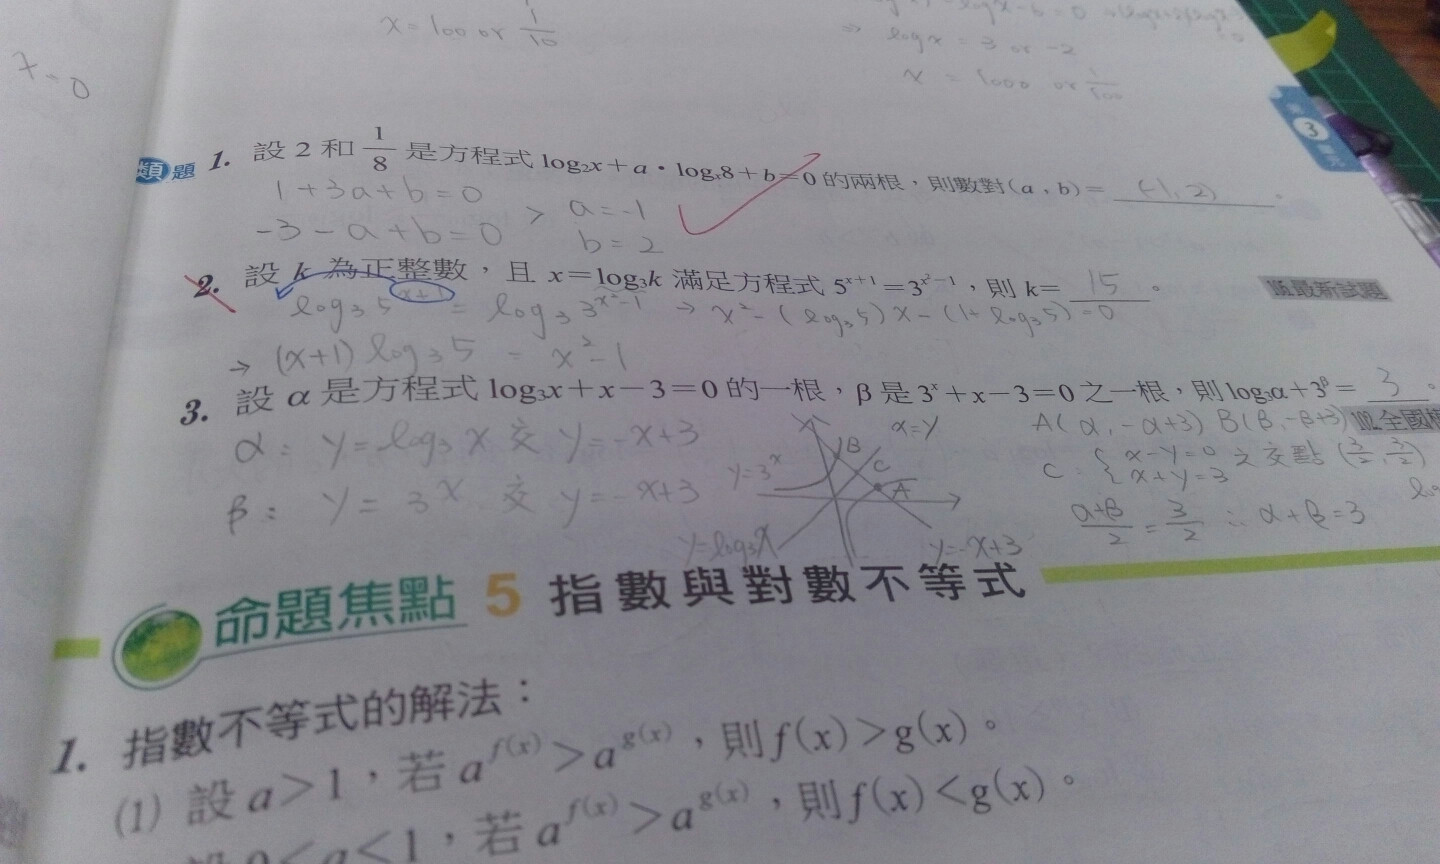 x = 100 or 1/10
log x = 3 or -2
x = 1000 or 1/100
第 3 單元
類題 1. 設 2 和 1/8 是方程式 log₂x + a · logₓ8 + b = 0 的兩根，則數對 (a , b) = (-1, 2) 。
1 + 3a + b = 0
a = -1
-3 - a + b = 0 >
b = 2
2. 設 k 為正整數，且 x = log₃k 滿足方程式 5ˣ⁺¹ = 3ˣ²⁻¹，則 k = 15 。
最新試題
log₃5ˣ⁺¹ = log₃3ˣ²⁻¹ → x² - (log₃5)x - (1 + log₃5) = 0
→ (x+1) log₃5 = x² - 1
3. 設 α 是方程式 log₃x + x - 3 = 0 的一根，β 是 3ˣ + x - 3 = 0 之一根，則 log₃α + 3ᵝ = 3 。
102.全國模
α : y = log₃x 交 y = -x+3
β : y = 3ˣ 交 y = -x+3
y = 3ˣ
x = y
B
C
A
y = log₃x
y = -x+3
A(α, -α+3) B(β, -β+3)
C : { x - y = 0 x + y = 3 之交點 (3/2, 3/2)
α+β/2 = 3/2 ∴ α + β = 3
命題焦點 5 指數與對數不等式
1. 指數不等式的解法：
(1) 設 a > 1，若 aᶠ⁽ˣ⁾ > aᵍ⁽ˣ⁾，則 f(x) > g(x)。
設 0 < a < 1，若 aᶠ⁽ˣ⁾ > aᵍ⁽ˣ⁾，則 f(x) < g(x)。